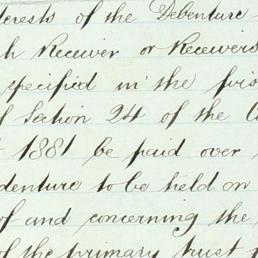 terests of the Debenture
h Receiver or Receivers
specified in the
f Section 24 of the
1881 be paid over
denture to be held on
of and concerning the
of the primary trust